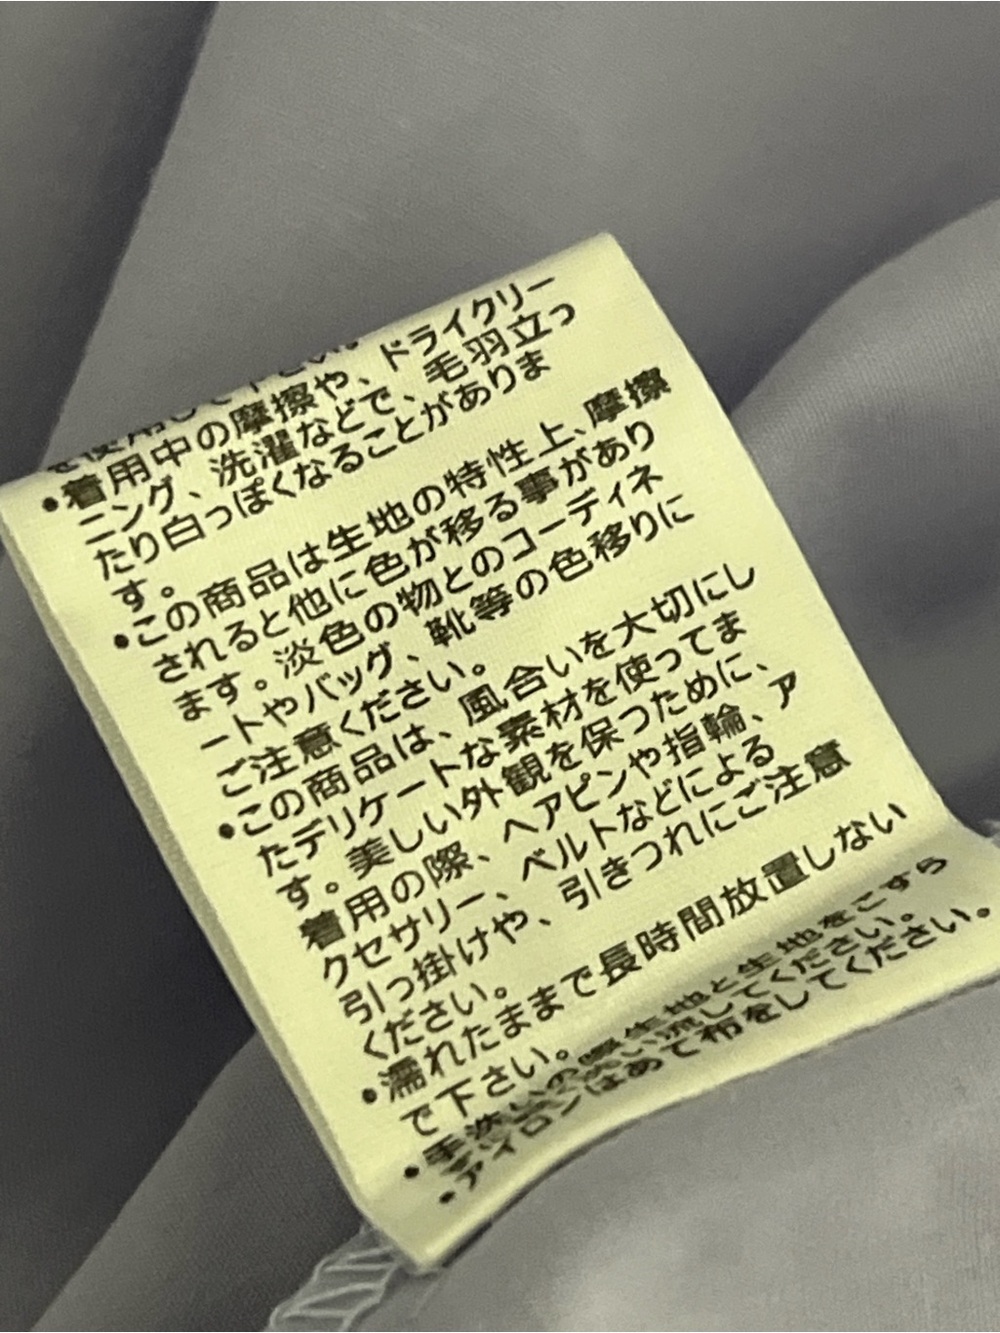 を使用して下さい。
•着用中の摩擦や、ドライクリー
ニング、洗濯などで、毛羽立っ
たり白っぽくなることがありま
す。
•この商品は生地の特性上、摩擦
されると他に色が移る事があり
ます。淡色の物とのコーディネ
ートやバッグ、靴等の色移りに
ご注意ください。
•この商品は、風合いを大切にし
たデリケートな素材を使ってま
す。美しい外観を保つために、
着用の際、ヘアピンや指輪、ア
クセサリー、ベルトなどによる
引っ掛けや、引きつれにご注意
ください。
•濡れたままで長時間放置しない
で下さい。
•手洗いの際生地と生地をこすら
ず洗い流してください。
•アイロンはあて布をしてください。